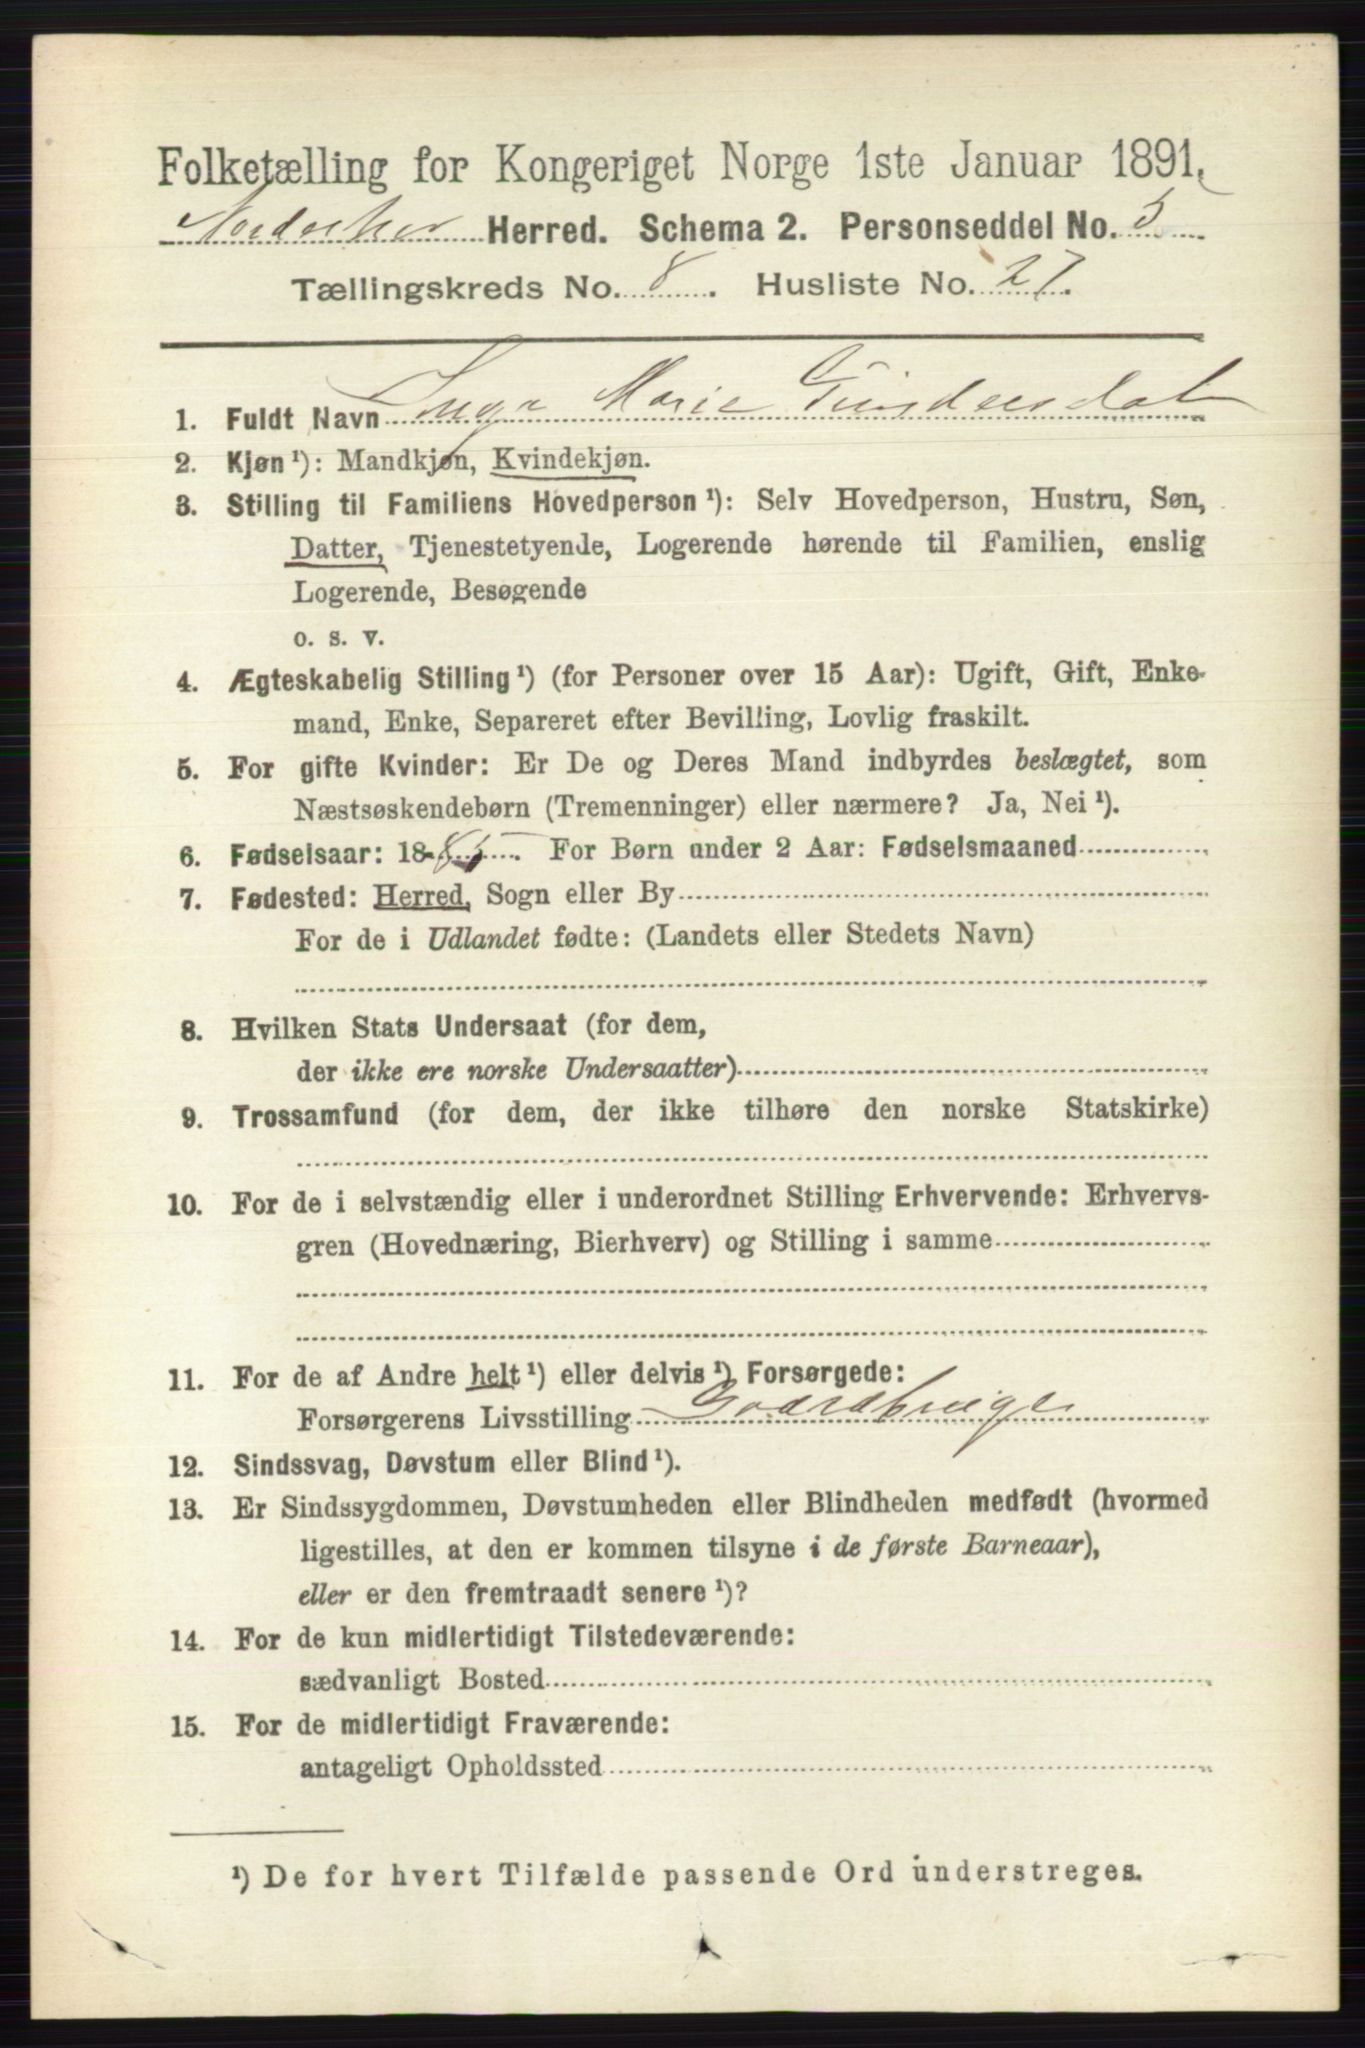 Folketælling for Kongeriget Norge 1ste Januar 1891.
Herred. Schema 2. Personseddel No. 5
Tællingskreds No. 8. Husliste No. 27.
1. Fuldt Navn Inga Marie
2. Kjøn ¹): Mandkjøn, Kvindekjøn.
3. Stilling til Familiens Hovedperson ¹): Selv Hovedperson, Hustru, Søn,
Datter, Tjenestetyende, Logerende hørende til Familien, enslig
Logerende, Besøgende
o. s. v.
4. Ægteskabelig Stilling ¹) (for Personer over 15 Aar): Ugift, Gift, Enke-
mand, Enke, Separeret efter Bevilling, Lovlig fraskilt.
5. For gifte Kvinder: Er De og Deres Mand indbyrdes beslægtet, som
Næstsøskendebørn (Tremenninger) eller nærmere? Ja, Nei ¹).
6. Fødselsaar: 1885. For Børn under 2 Aar: Fødselsmaaned
7. Fødested: Herred, Sogn eller By
For de i Udlandet fødte: (Landets eller Stedets Navn)
8. Hvilken Stats Undersaat (for dem,
der ikke ere norske Undersaatter)
9. Trossamfund (for dem, der ikke tilhøre den norske Statskirke)
10. For de i selvstændig eller i underordnet Stilling Erhvervende: Erhvervs-
gren (Hovednæring, Bierhverv) og Stilling i samme
11. For de af Andre helt ¹) eller delvis ¹) Forsørgede:
Forsørgerens Livsstilling Gaardbruger
12. Sindssvag, Døvstum eller Blind ¹).
13. Er Sindssygdommen, Døvstumheden eller Blindheden medfødt (hvormed
ligestilles, at den er kommen tilsyne i de første Barneaar),
eller er den fremtraadt senere ¹)?
14. For de kun midlertidigt Tilstedeværende:
sædvanligt Bosted
15. For de midlertidigt Fraværende:
antageligt Opholdssted
¹) De for hvert Tilfælde passende Ord understreges.